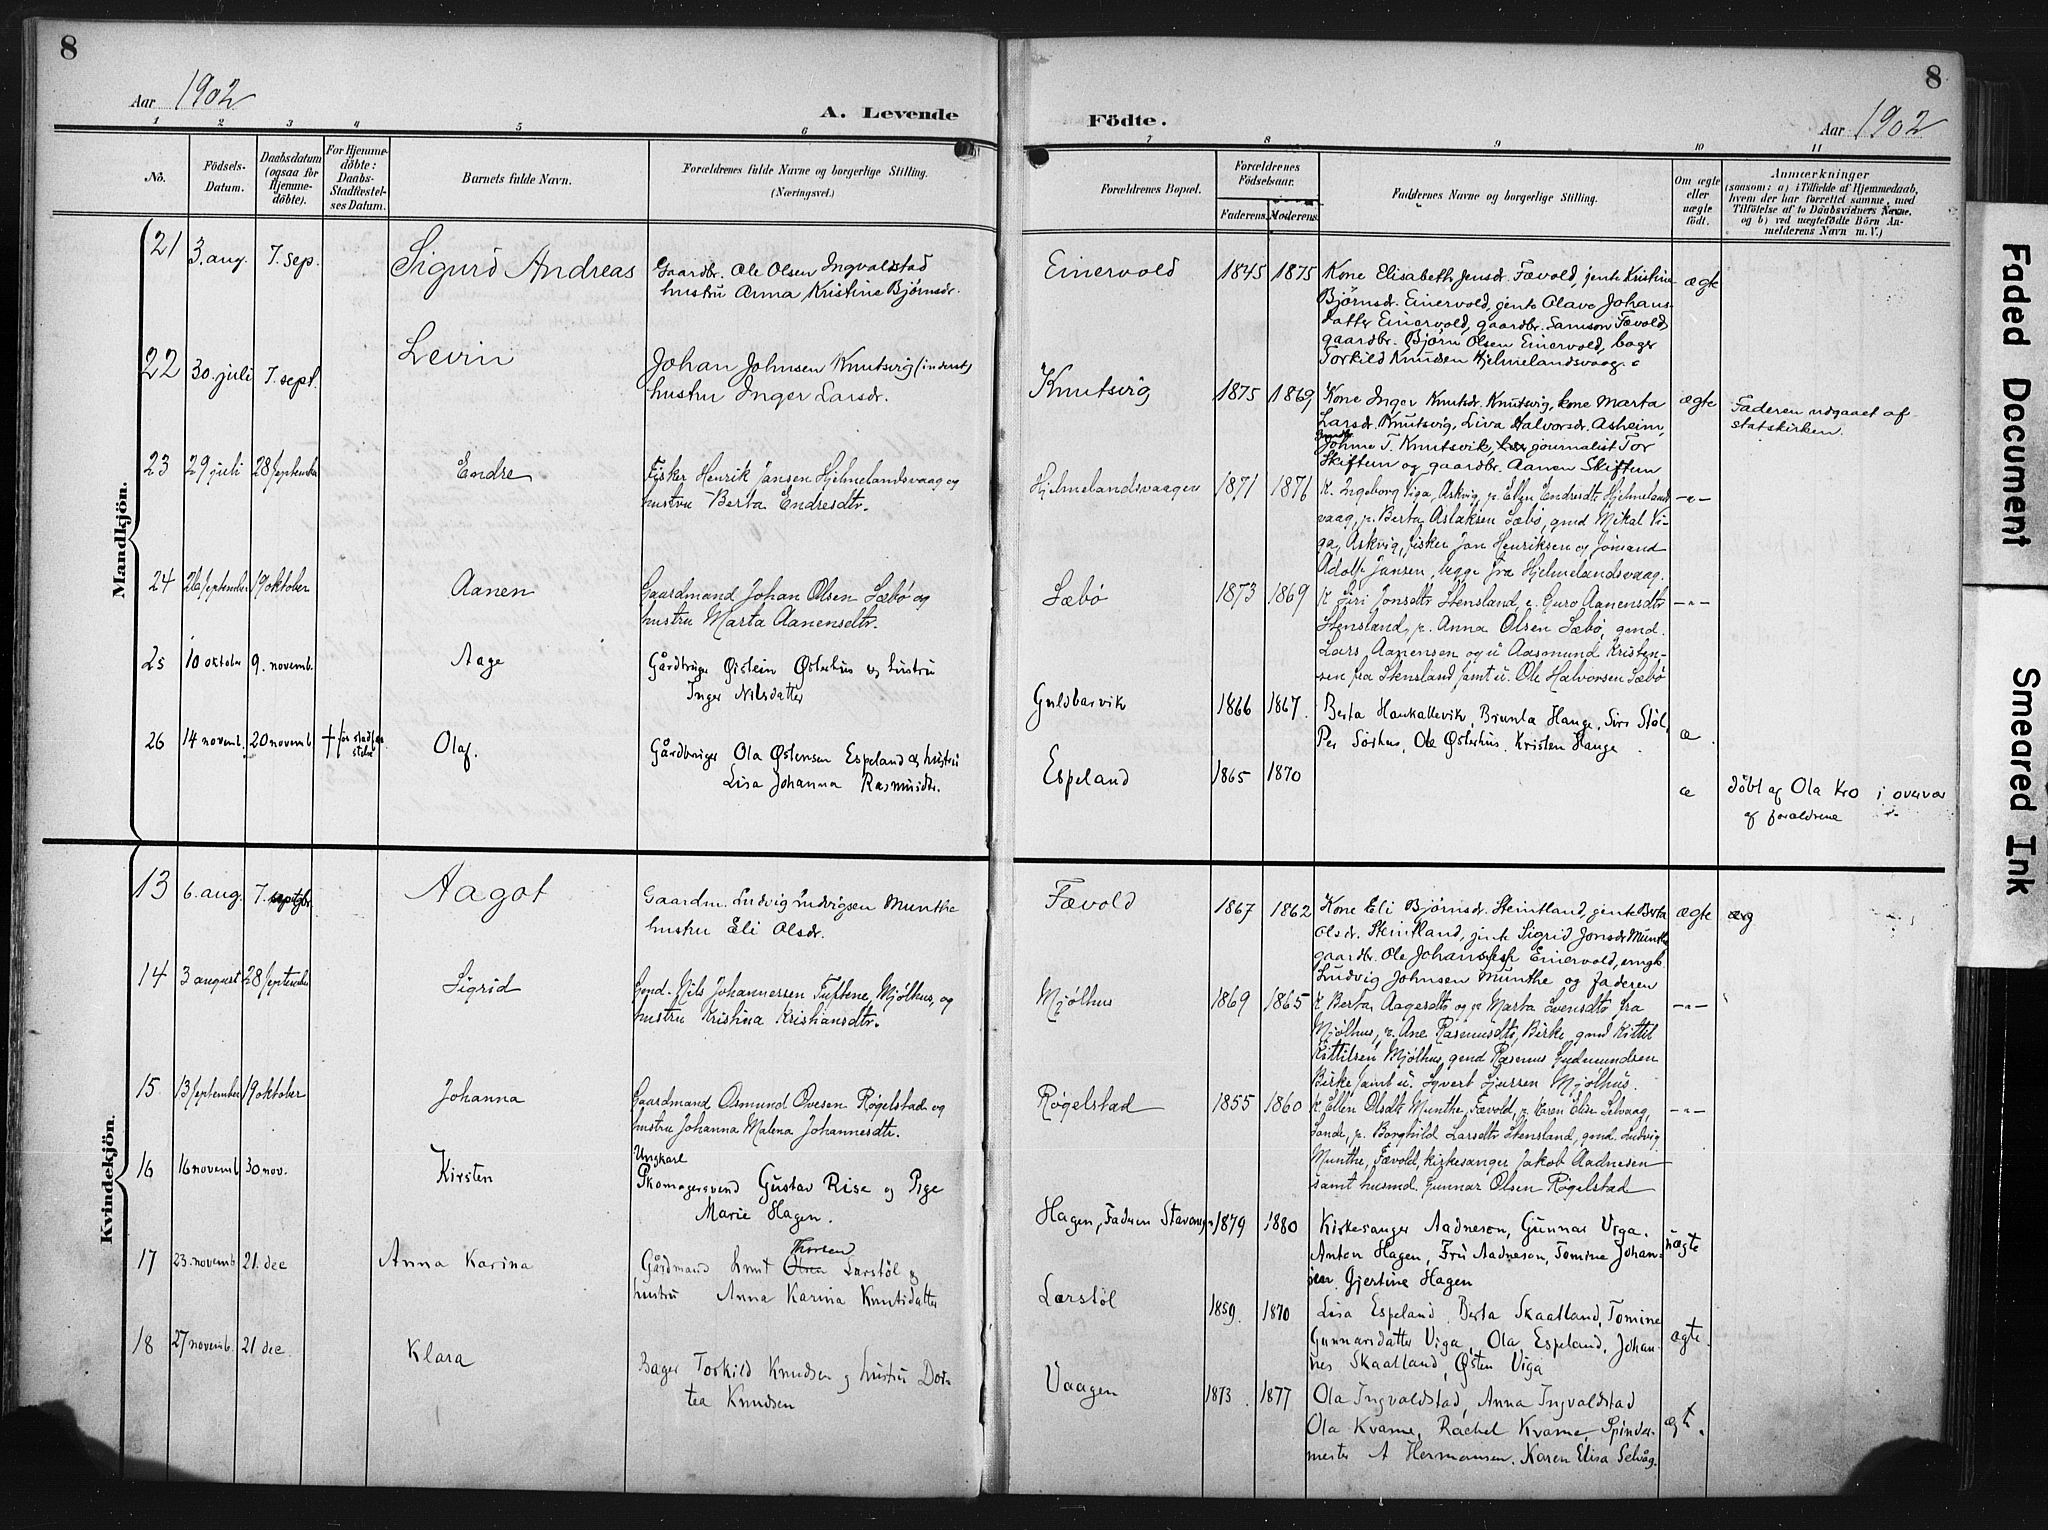 8
8
Aar 1902
A. Levende
Födte.
Aar 1902
1 2 3 4 5 6 7 8 9 10 11
Nô.
Födsels-Datum.
Daabsdatum (ogsaa for Hjemmedöbte).
For Hjemmedöbte: Daabs-Stadfæstelses Datum.
Barnets fulde Navn.
Forældrenes fulde Navne og borgerlige Stilling. (Næringsvei.)
Forældrenes Bopæl.
Forældrenes Födselsaar.
Faderens. Moderens.
Faddernes Navne og borgerlige Stilling.
Om ægte eller uægte födt.
Anmærkninger
(saasom: a) i Tilfælde af Hjemmedaab,
hvem der har forrettet samme, med
Tilföielse af to Daabsvidners Navne.
og b) ved uægtefödte Börn An-
melderens Navn m. V.)
Mandkjön.
21 3. aug. 7. sep. Sigurd Andreas
Gaardbr. Ole Olsen Ingvaldstad
hustru Anna Kristine Bjørnsdr.
Einervold 1845 1875
Kone Elisabeth Jensdr. Fævold, jente Kristine
Bjørnsdr. Einervold, jente Olave Johans-
datter Einervold, gaardbr. Samson Fævold
gaardbr. Bjørn Olsen Einervold, bager
Torkild Knudsen Hjelmelandsvaag.
ægte
22 30. juli 7. sept. Levin
Johan Johnsen Knutsvig (inderst)
hustru Inger Larsdr.
Knutsvig 1875 1869
Kone Inger Knutsdr. Knutsvig, kone Marta
Larsdr. Knutsvig, Liva Halvorsdr. Asheim,
Johme T. Knutsvik, journalist Tor
Skiftun og gaardbr. Aanen Skiftun
ægte
Faderen udgaaet af
statskirken.
23 29 juli 28 September Endre
Fisker Henrik Jansen Hjelmelandsvaag og
hustru Berta Endresdtr.
Hjelmelandsvaagen 1871 1876
k. Ingeborg Viga, Askvig, p. Ellen Endresdtr. Hjelmeland
vaag, p. Berta Aslaksen Sæbø, gmd Mikal Vi-
ga, Askvig, fisker Jan Henriksen og Jømand
Adolf Jansen, begge fra Hjelmelandsvaag.
-"-
24 26 September 19 oktober Aanen
Gaardmand Johan Olsen Sæbø og
hustru Marta Aanensdtr.
Sæbø 1873 1869
k Siri Jonsdtr Stensland, e. Guro Aanensdtr
Stensland, p. Anna Olsen Sæbø, gmd.
Lars Aanensen og u Aasmund Kristen-
sen fra Stensland samt u. Ole Halvorsen Sæbø
-"-
25 10 oktober 9. novemb. Aage
Gårdbruge Øistein Østerhus og hustru
Inger Nilsdatter
Gulsbarvik 1866 1867.
Berta Haukallevik, Brunla Hauge, Siri Støl,
Per Sørhus, Ole Østerhus. Kristen Hauge.
æ.
26 14 novemb. 20 novemb † før stadfæstelse Olaf.
Gårdbruger Ola Østensen Espeland og hustru
Lisa Johanna Rasmusdtr.
Espeland 1865 1870
æ
døbt af Ola Kro i overvær
af forældrene
Kvindekjön.
13 6. aug. 7. septbr. Aagot
Gaardm. Ludvig Ludvigsen Munthe
hustru Eli Olsdr.
Fævold 1867 1862
Kone Eli Bjørnsdr. Steintland, jente Berta
Olsdr. Steintland, jente Sigrid Jonsdr Munthe
gaardbr. Ole Johannesen Einervold, ungk.
Ludvig Johnsen Munthe og faderen
ægte æg
14 3 august 28 September Sigrid
Gmd. Nils Johannessen Tuftene, Mjølhus, og
hustru Kristina Kristiansdtr.
Mjølhus 1869 1865
k Berta Aagesdtr og p. Marta Svensdtr fra
Mjølhus, p. Ane Rasmusdtr, Birke, gmd Kittil
Kittilsen Mjølhus, gmd Rasmus Gudmundsen
Birke samt u. Syvert Sjursen Mjølhus.
-"-
15 13 September 19 oktober Johanna
Gaardmand Osmund Ovesen Røgelstad og
hustru Johanna Malena Johannesdtr.
Røgelstad 1855 1860
k Ellen Olsdtr Munthe, Fævold, p. Karen Elise Selvaag,
Sande, p. Borghild Larsdtr Stensland, gmd. Ludvig
Munthe, Fævold, kirkesanger Jakob Aadnesen
samt husmd. Gunnar Olsen Røgelstad
-"-
16 16 novemb 30 nov. Kirsten
Ungkarl
Skomagersvend Gustav Rise og Pige
Marie Hagen.
Hagen, Faderen Stavanger 1879 1880
Kirkesanger Aadneson, Gunnar Viga.
Anton Hagen, Fru Aadneson, Tomine Johan-
sen Gjertine Hagen
uægte
17 23. novemb 21. dec Anna Karina
Gårdmand Knut Olsen Thorsen Larstøl og
hustru Anna Karina Knutsdatter
Lærstøl 1859. 1870
Lisa Espeland, Berta Skaatland, Tomine
Gunnarsdatter Viga, Ola Espeland, Johan-
nes Skaatland, Østen Viga
ægte.
18 27 novemb. 21 dec Klara
Bager Torkild Knudsen og hustru Dor-
tea Knudsen
Vaagen 1873. 1877
Ola Ingvaldstad, Anna Ingvaldstad
Ola Kvame, Rachel Kvame, Spinder-
mester A Hermansen. Karen Elisa Selvåg.
ægt.
Faded Document
Smeared Ink